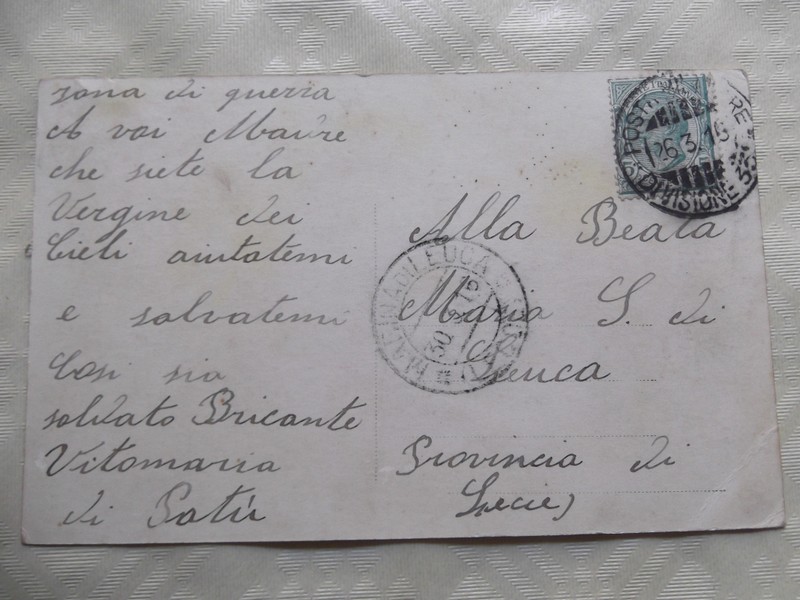 zona di guerra
A voi Madre
che siete la
Vergine dei
Cieli aiutatemi
e salvatemi
Cosi sia
soldato Bricante
Vitomaria
di Patù
Alla Beata
Maria S. di
Leuca
Provincia di
Lecce
POSTA
26.3.16
DIVISIONE 33
LEUCA
30